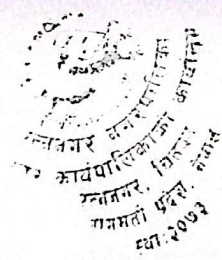 रत्ननगर नगरपालिका
नगर कार्यपालिकाको कार्यालय
रत्ननगर, चितवन
बागमती प्रदेश, नेपाल
स्था: २०७३